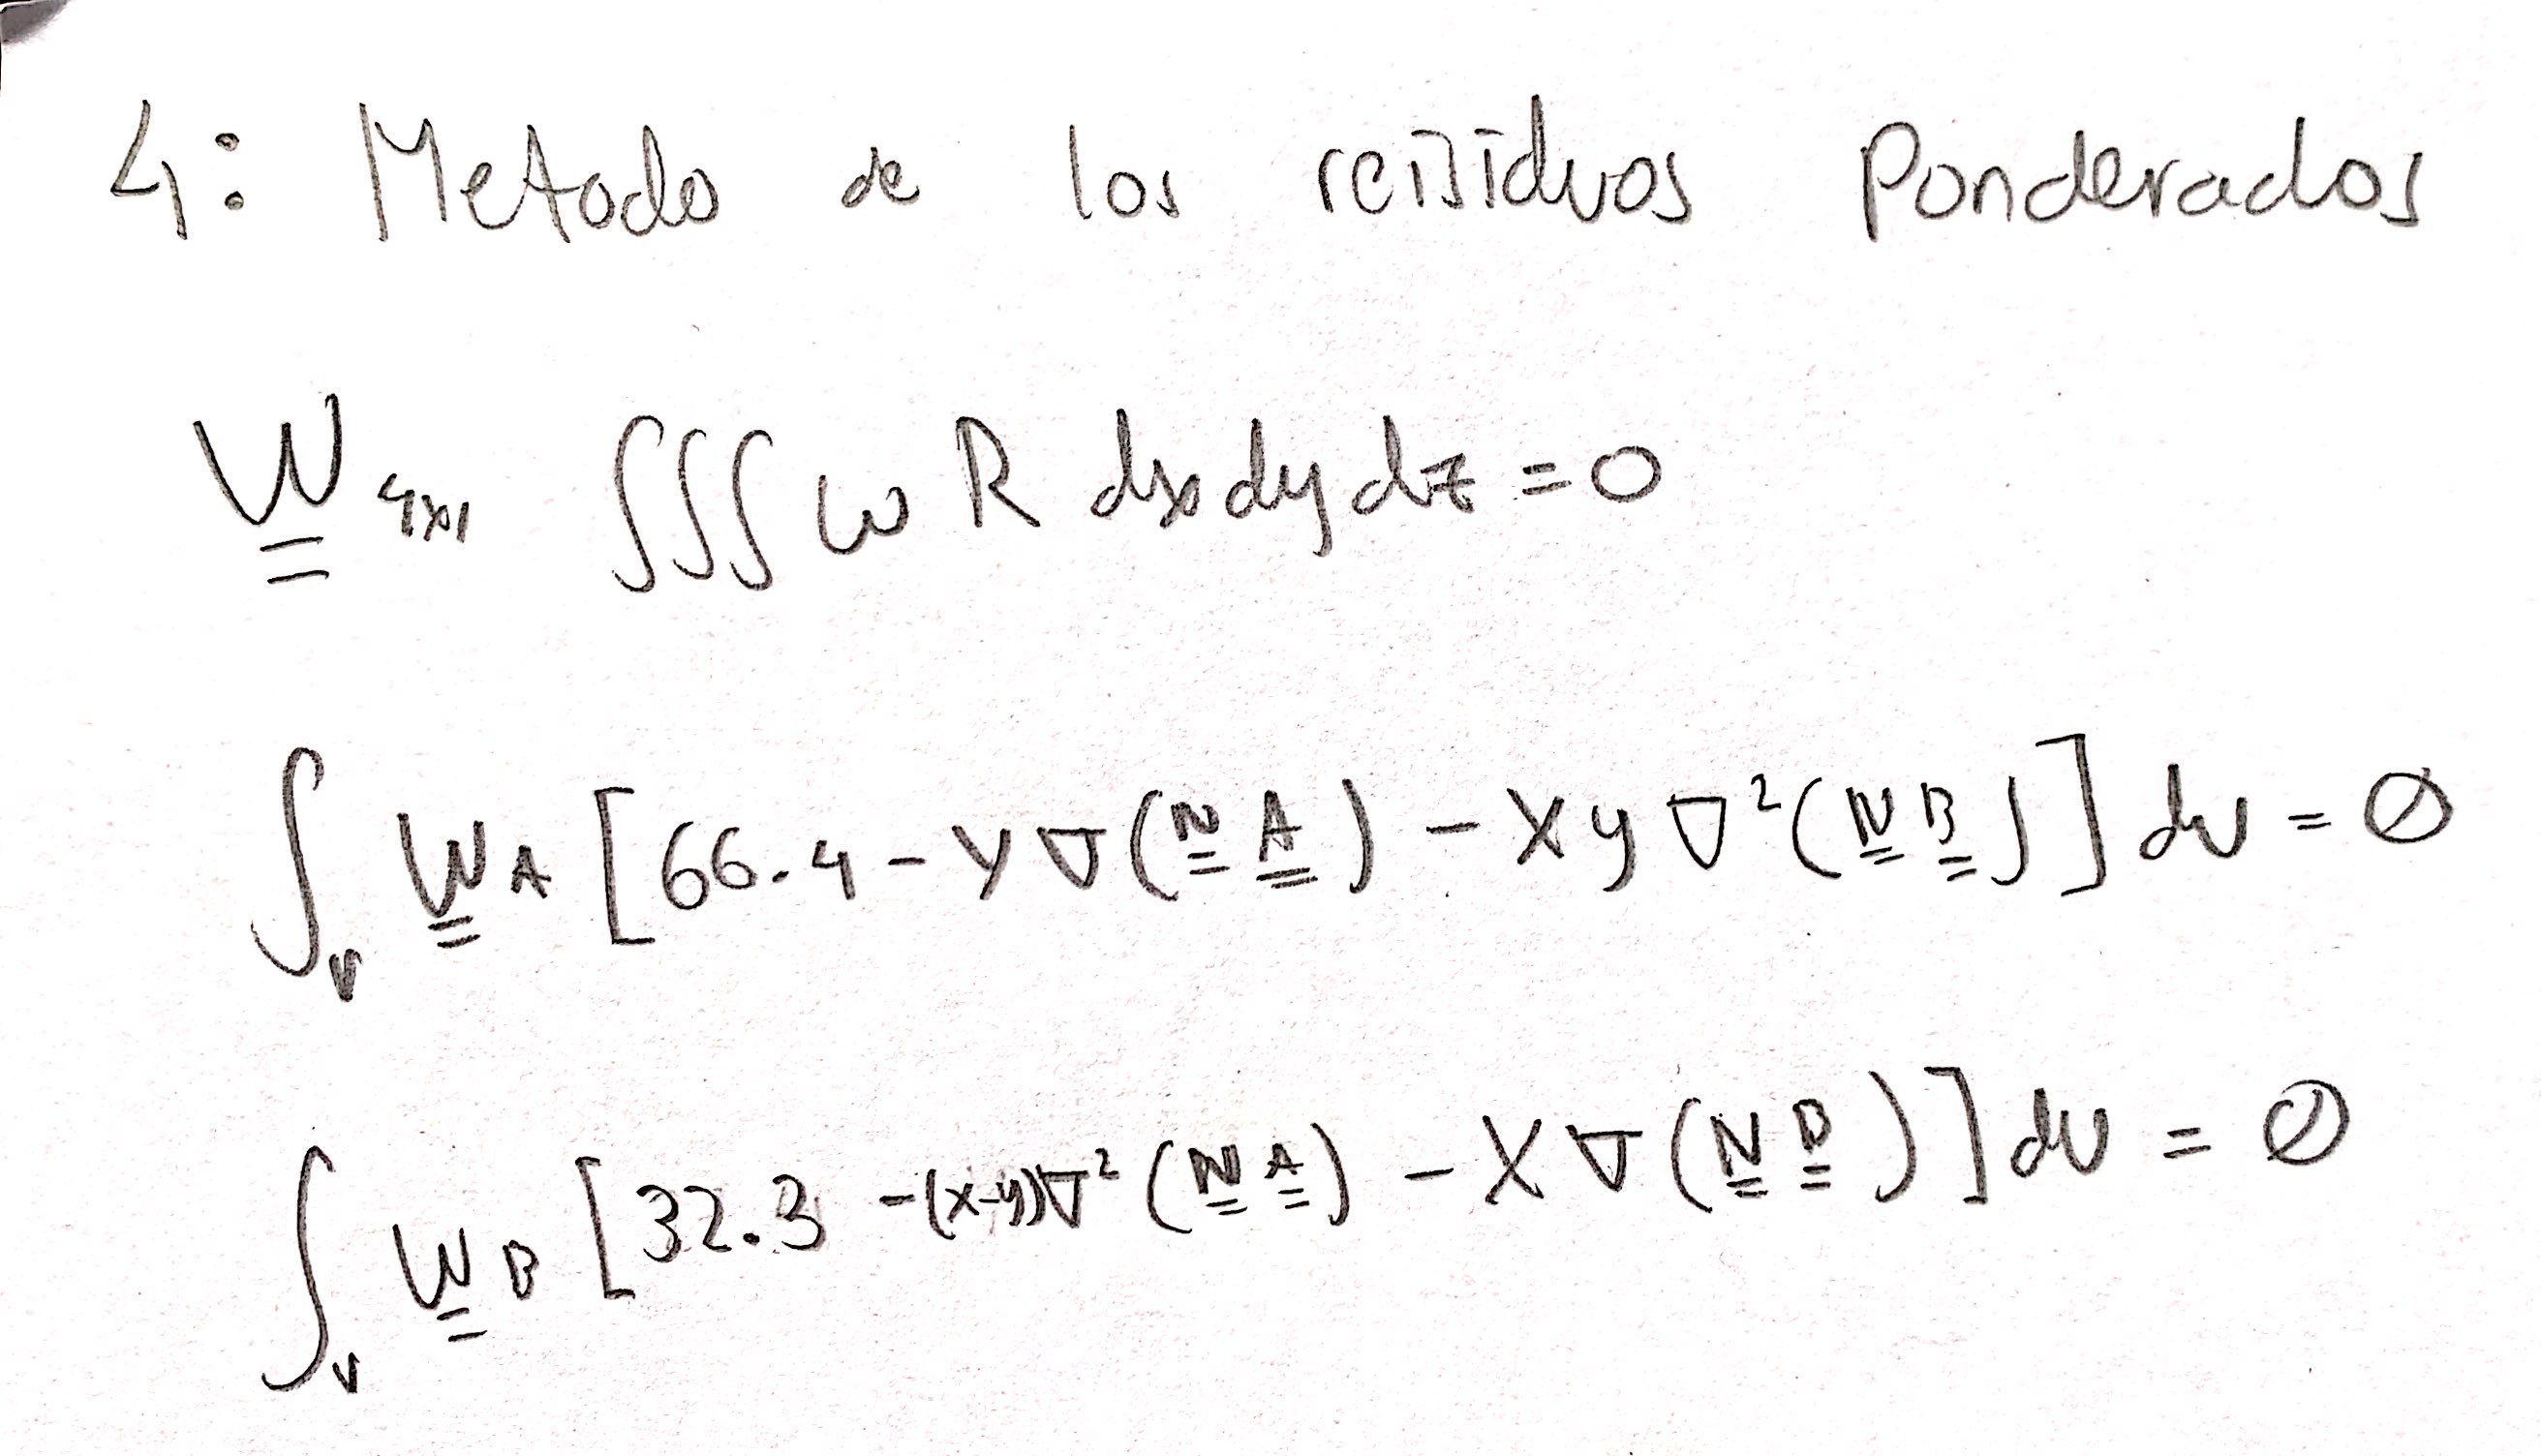 4: Metodo de los residuos Ponderados
W 4x1 ∭ ω R dxdydz = 0
∫v W A [66.4 - y ∇(N A) - xy ∇²(N B)] dv = ∅
∫v W B [32.3 -(x-y)∇²(N A) - x ∇(N B)] dv = ∅